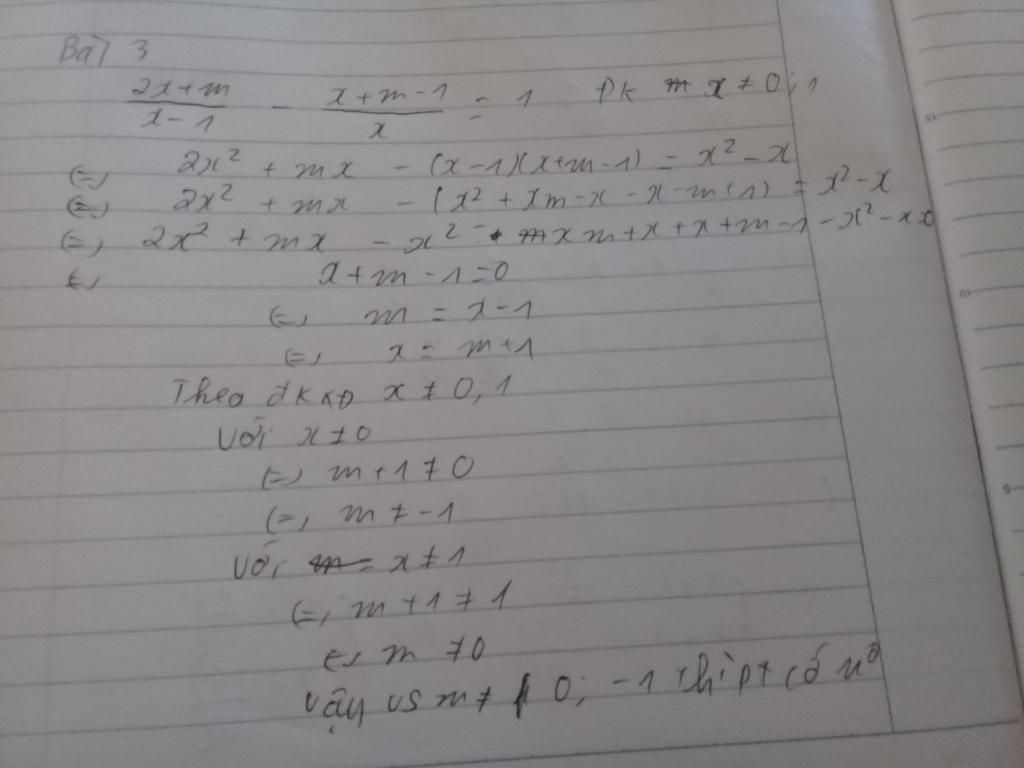 Bài 3
(2x+m)/(x-1) - (x+m-1)/x = 1 ĐK x ≠ 0; 1
(=) 2x² + mx - (x-1)(x+m-1) = x² - x
(=) 2x² + mx - (x² + xm - x - x - m + 1) = x² - x
(=) 2x² + mx - x² - xm + x + x + m - 1 - x² - x
(=) x + m - 1 = 0
(=) m = x - 1
(=) x = m + 1
Theo đkxđ x ≠ 0; 1
Với x ≠ 0
(=) m + 1 ≠ 0
(=) m ≠ -1
Với x ≠ 1
(=) m + 1 ≠ 1
(=) m ≠ 0
Vậy vs m ≠ 0; -1 thì pt có n⁰